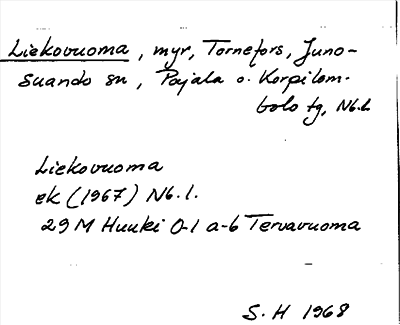 Liekovuoma, myr, Tornefors, Juno-
suando sn, Pajala o. Korpilom-
bolo tg, Nb.l.
Liekovuoma
ek (1967) Nb.l.
29 M Huuki 0-1 a-b Tervavuoma
S. H 1968